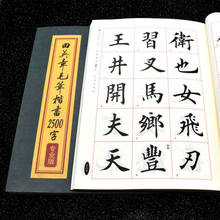 田英章毛筆楷書2500字
专业版
衛也女飛刃
習叉馬鄉豐
王井開夫天